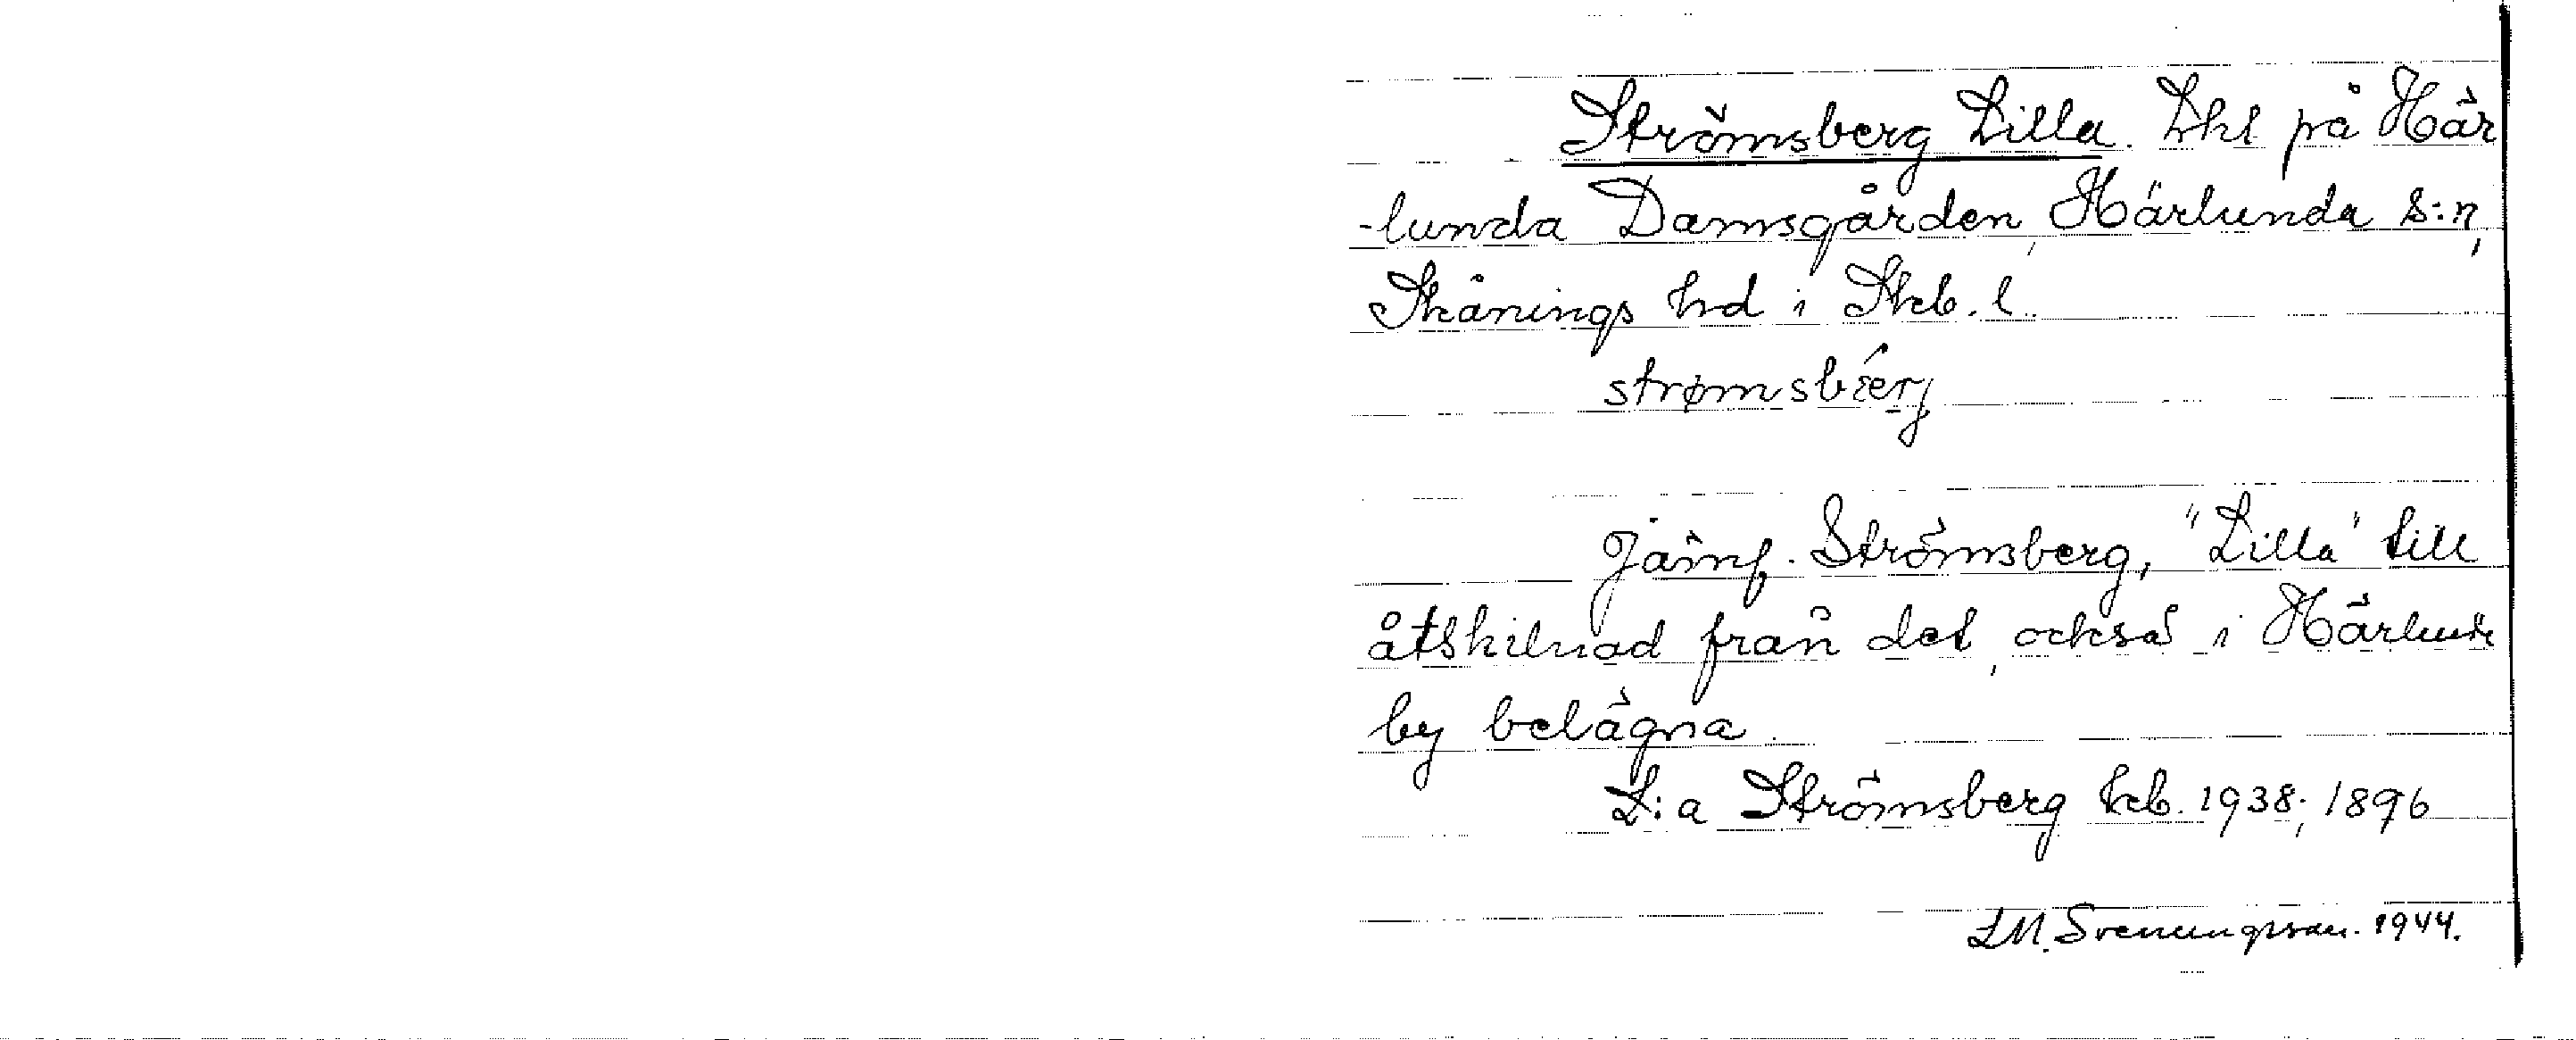 Strömsberg Lilla. Lht på Här
-lunda Damsgården, Härlunda s:n,
Skånings hd i Skb. l.
strømsbærj
Jämf. Strömsberg, "Lilla" till
åtskilnad från det, också i Härlunda
by belägna.
L:a Strömsberg kb. 1938; 1896
LM. Svenungsson. 1944.